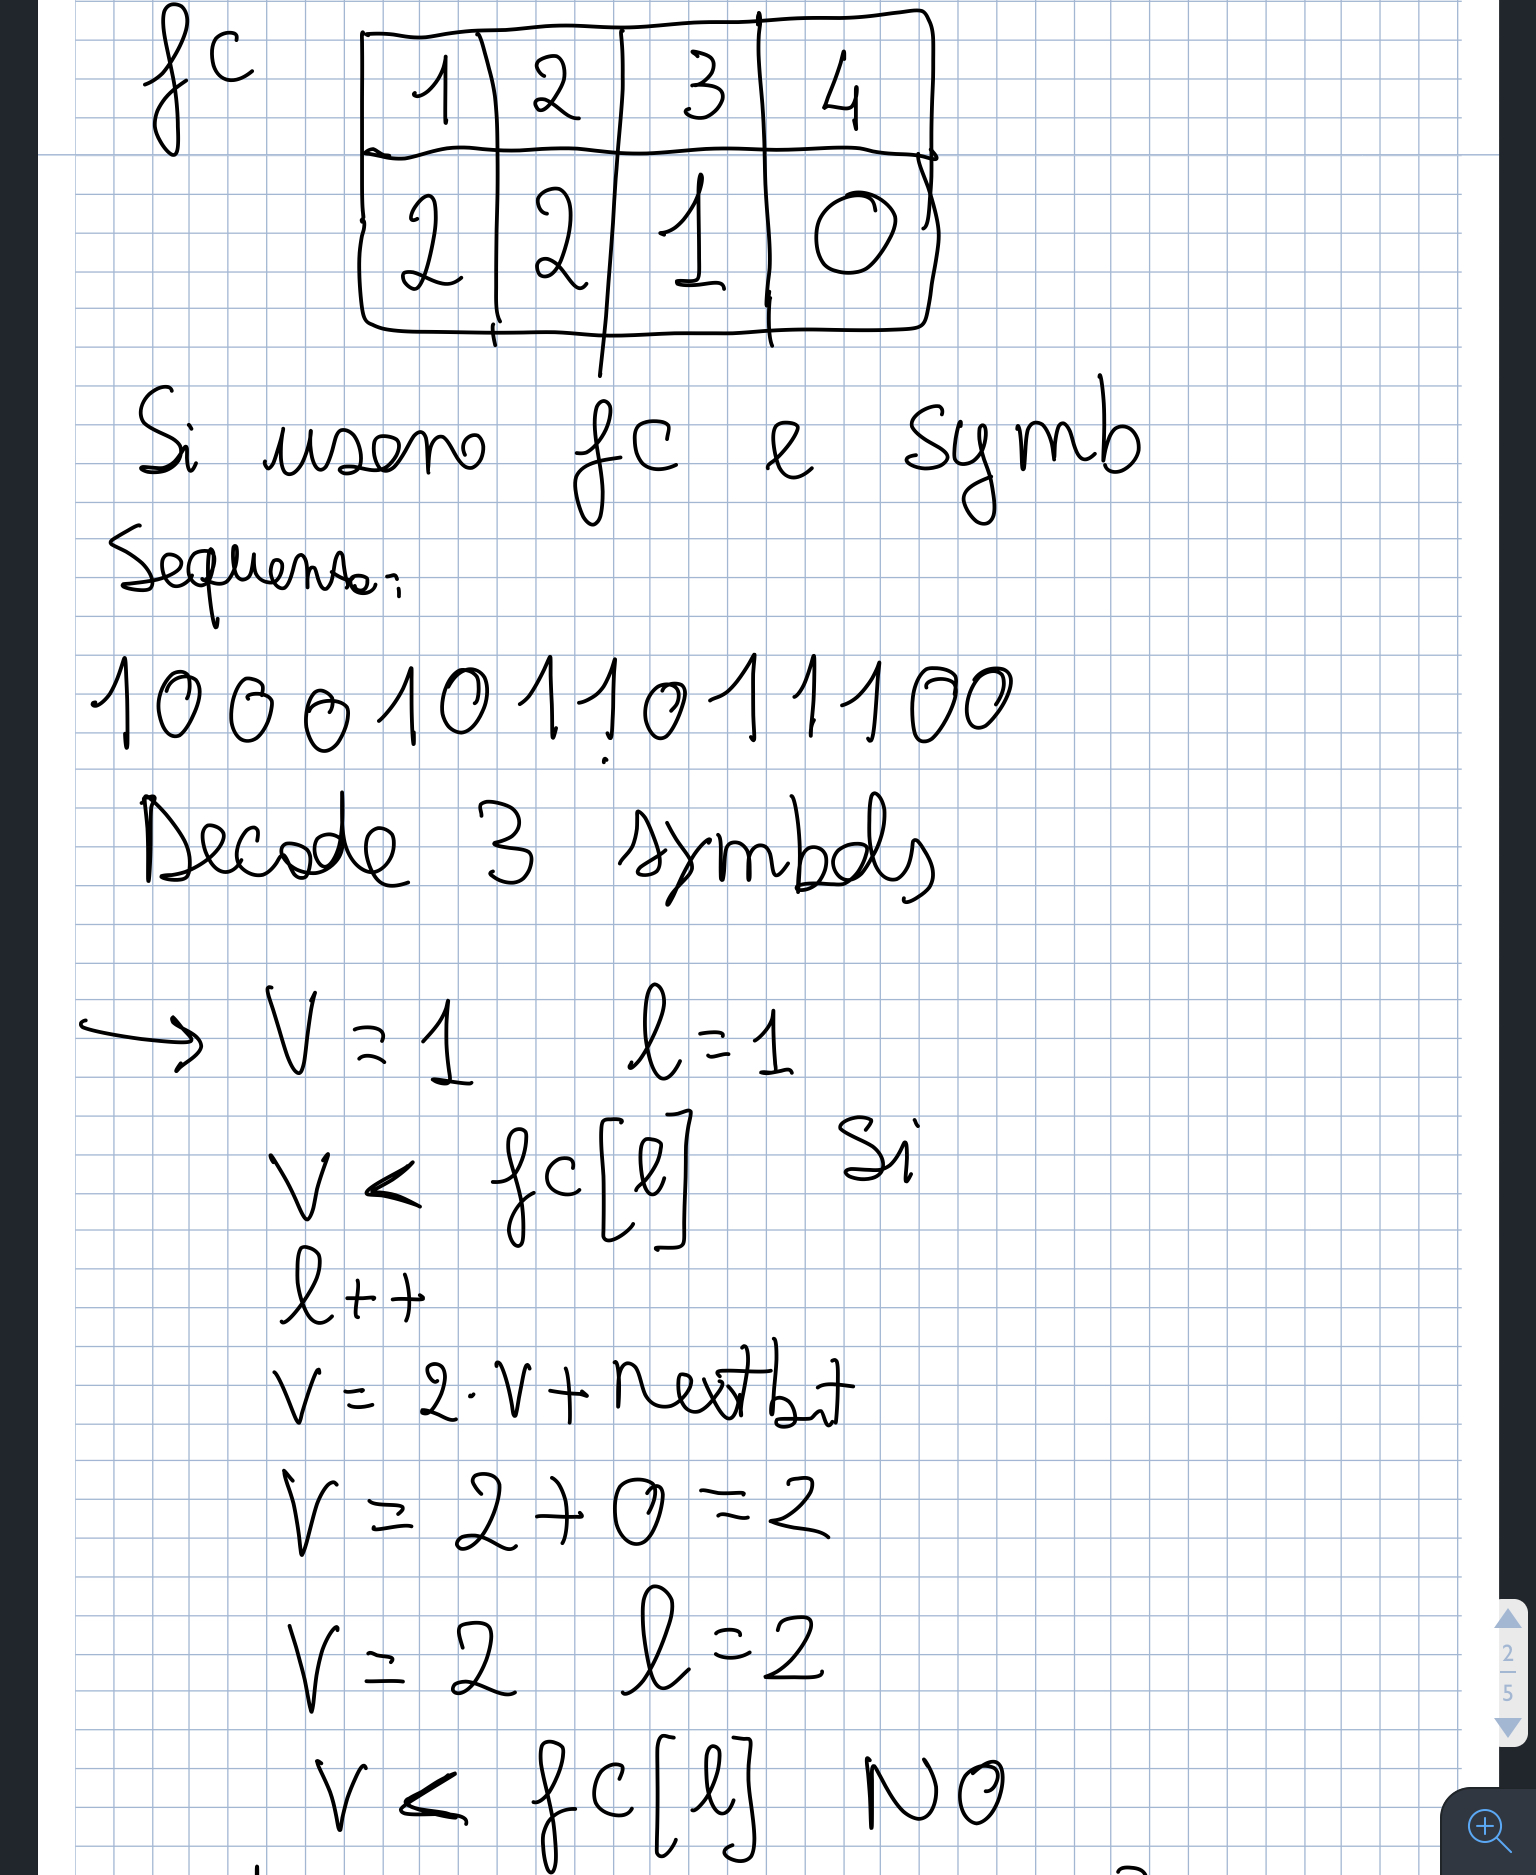 fc 1 2 3 4
2 2 1 0
Si usano fc e symb
Sequenza:
1000101101 1100
Decode 3 symbols
→ V = 1 l = 1
V < fc[l] Si
l++
V = 2·V + nextbit
V = 2 + 0 = 2
V = 2 l = 2
V < fc[l] NO
2
5